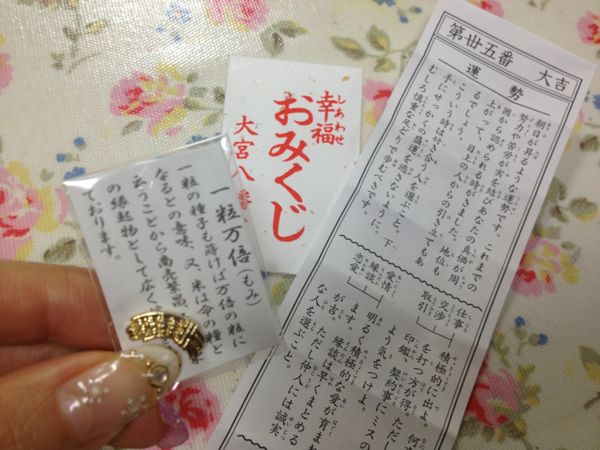 第卅五番 大吉
運勢
朝日が昇るような運勢です。これまでの
努力や苦労が実を結びあなたの真価が周
囲から認められる時がきました。地位も
上がって、目上の人からの引き立てもあ
るでしょう。
こういう時は付き合う人を選ぶこと。下
手にせっかくの盛運を逃さないように、
むしろ慎重な足どりで歩むべきです。
仕事
交渉
取引
積極的に出よ。何
を打つ方が得。ただし
印鑑、契約事にミスの
よう気をつけよ。
愛情
縁談
恋愛
明るく積極的な愛が育まれ
ます。縁談は早くまとめる
が吉。ただし仲人には誠実
な人を選ぶこと。
幸福
しあわせ
おみくじ
大宮八
一粒万倍(もみ)
一粒の種子も蒔けば万倍の粒に
なるとの意味、又、米は命の糧と
云うことから商売繁昌、
の縁起物として広く
ております。